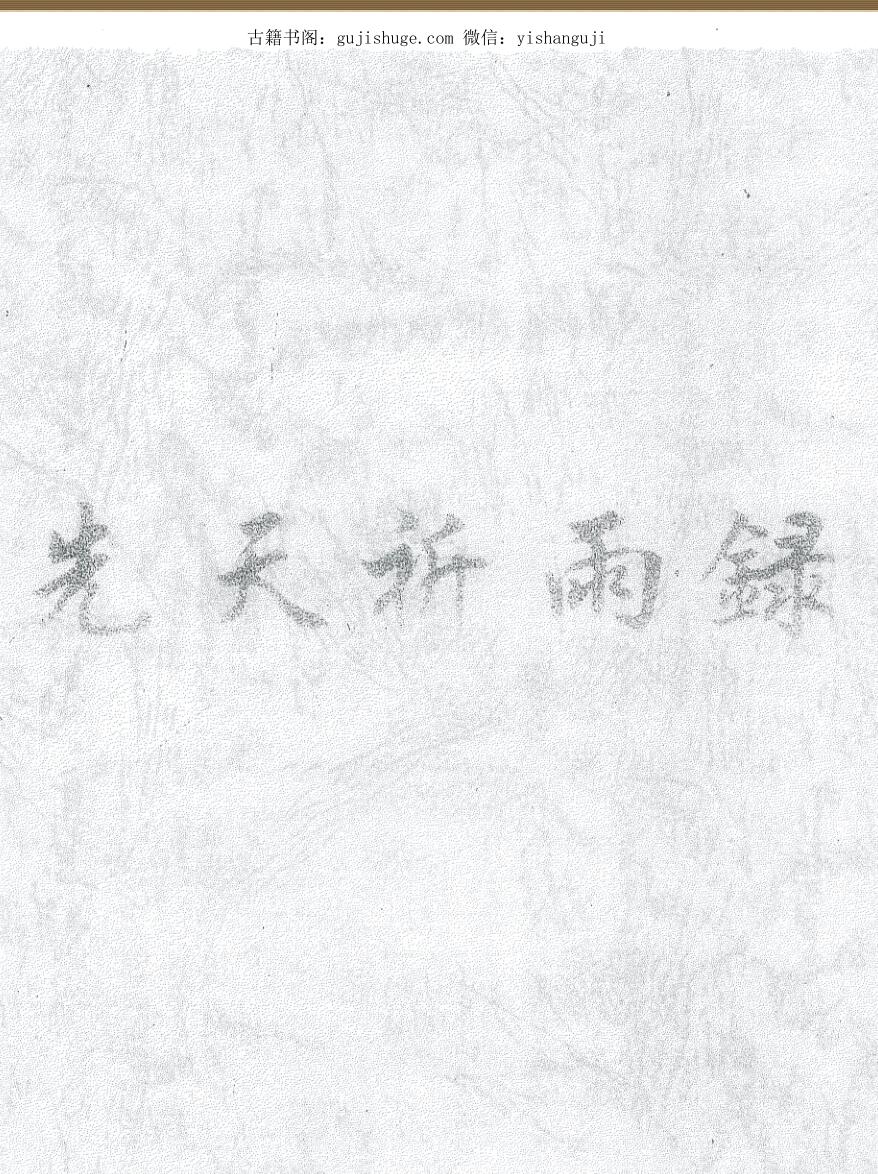 古籍书阁：gujishuge.com 微信：yishanguji
先天祈雨録